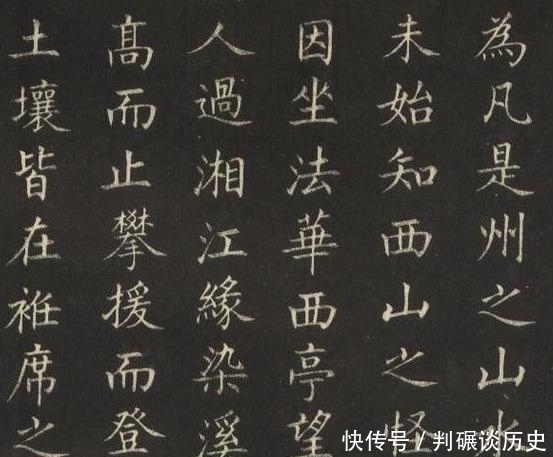 為凡是州之山水
未始知西山之怪
因坐法華西亭望
人過湘江緣染溪
髙而止攀援而登
土壤皆在袵席之
快传号／判碾谈历史